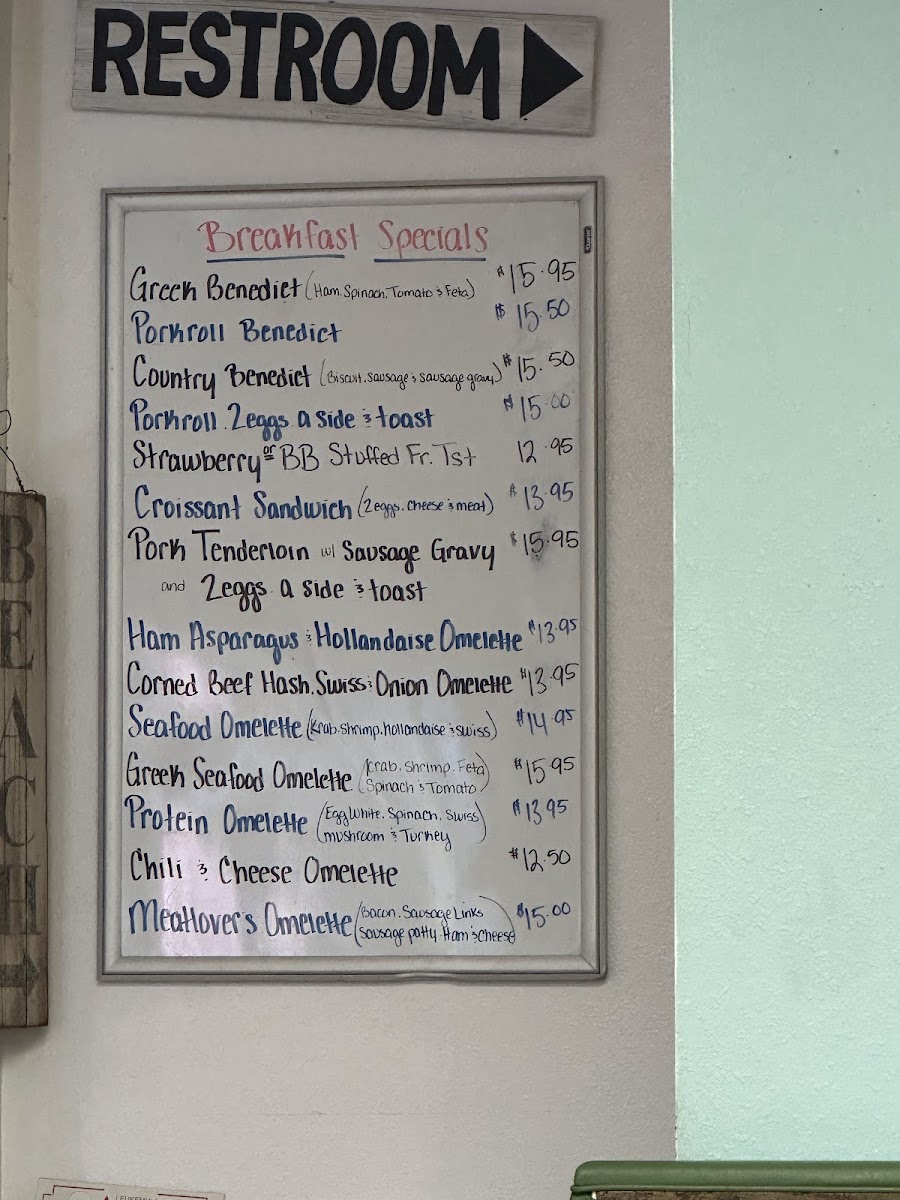 RESTROOM
Breakfast Specials
Greek Benedict (Ham. Spinach. Tomato & Feta) $15.95
Porkroll Benedict $15.50
Country Benedict (Biscuit. Sausage & Sausage gravy) $15.50
Porkroll. 2eggs a side & toast $15.00
Strawberry or BB Stuffed Fr. Tst 12.95
Croissant Sandwich (2eggs. cheese & meat) $13.95
Pork Tenderloin w/ Sausage Gravy $15.95
and 2eggs a side & toast
Ham Asparagus & Hollandaise Omelette $13.95
Corned Beef Hash. Swiss & Onion Omelette $13.95
Seafood Omelette (Krab. Shrimp. hollandaise & Swiss) $14.95
Greek Seafood Omelette (Krab. Shrimp. Feta $15.95
Spinach & Tomato)
Protein Omelette (Egg White. Spinach. Swiss $13.95
mushroom & Turkey)
Chili & Cheese Omelette $12.50
Meatlover's Omelette (Bacon. Sausage Links $15.00
Sausage patty. Ham & cheese)
BEACH